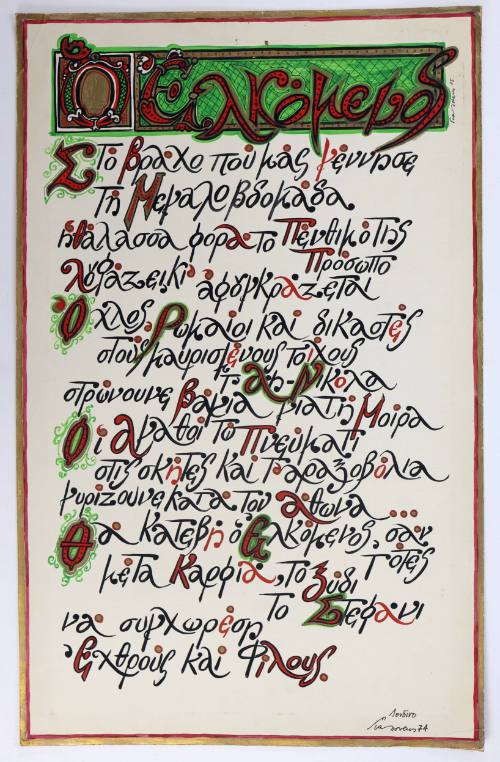 Ο Ελκόμενος
Στο βράχο που μας γέννησε
τη Μεγαλοβδομάδα
η θάλασσα φορά το Πένθιμό της
Πρόσωπο
λουφάζει κι' αφουγκράζεται
Όχλος Ρωμαίοι και δικαστές
στους μαυρισμένους τοίχους
τ' Αη-Νικόλα
στρώνουνε βάγια για τη Μοίρα
Οι αγαθοί το Πνεύματι
στις σκήτες και
γυρίζουνε κατά τον άθωνα ...
Θα κατεβή ο Ελκόμενος, σαν
τότες
με τα καρφιά, το Ξύδι
το Στεφάνι
να συγχωρέση
Εχθρούς και Φίλους.
Λονδίνο
74